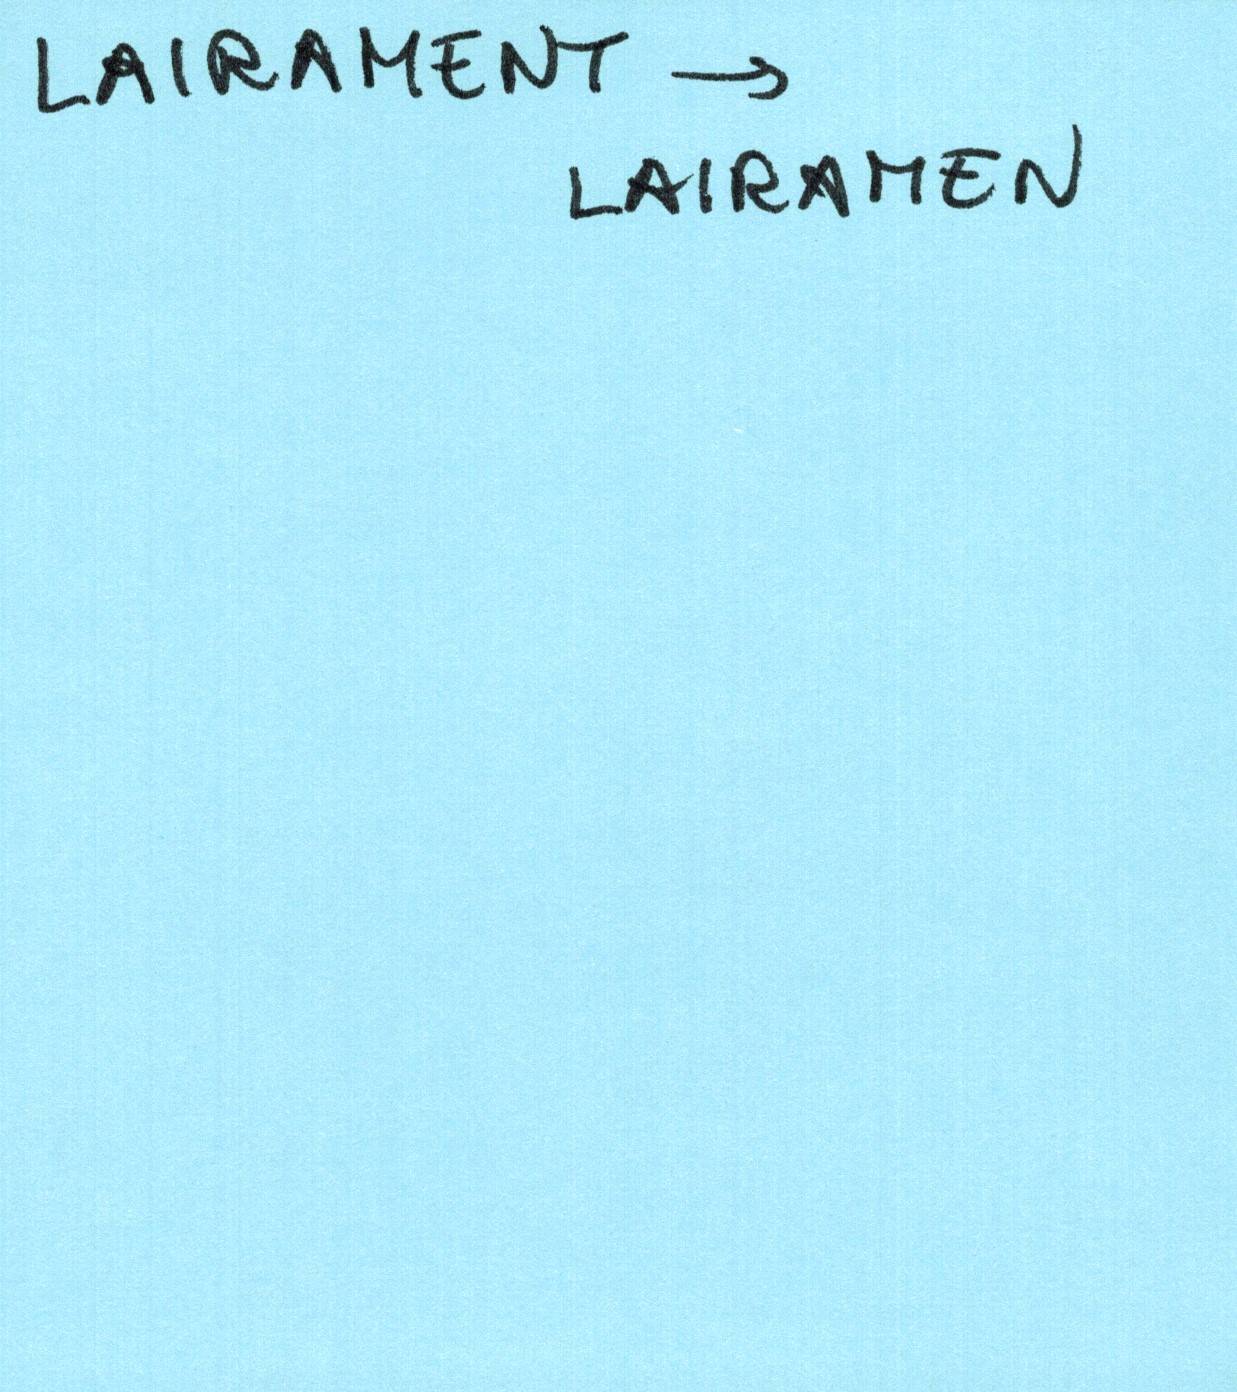 LAIRAMENT →
LAIRAMEN